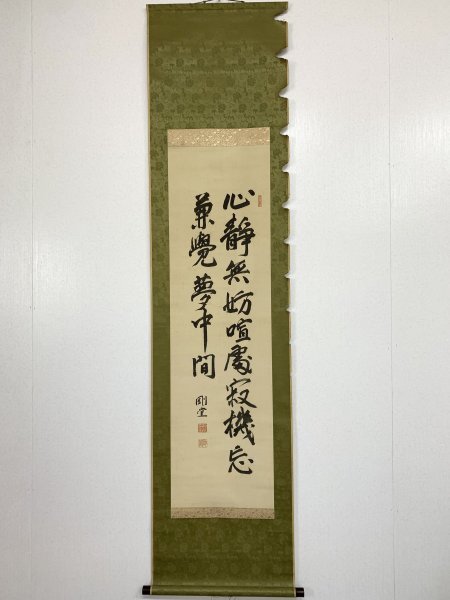 心靜無妨喧處寂機忘
兼覺夢中間
剛堂